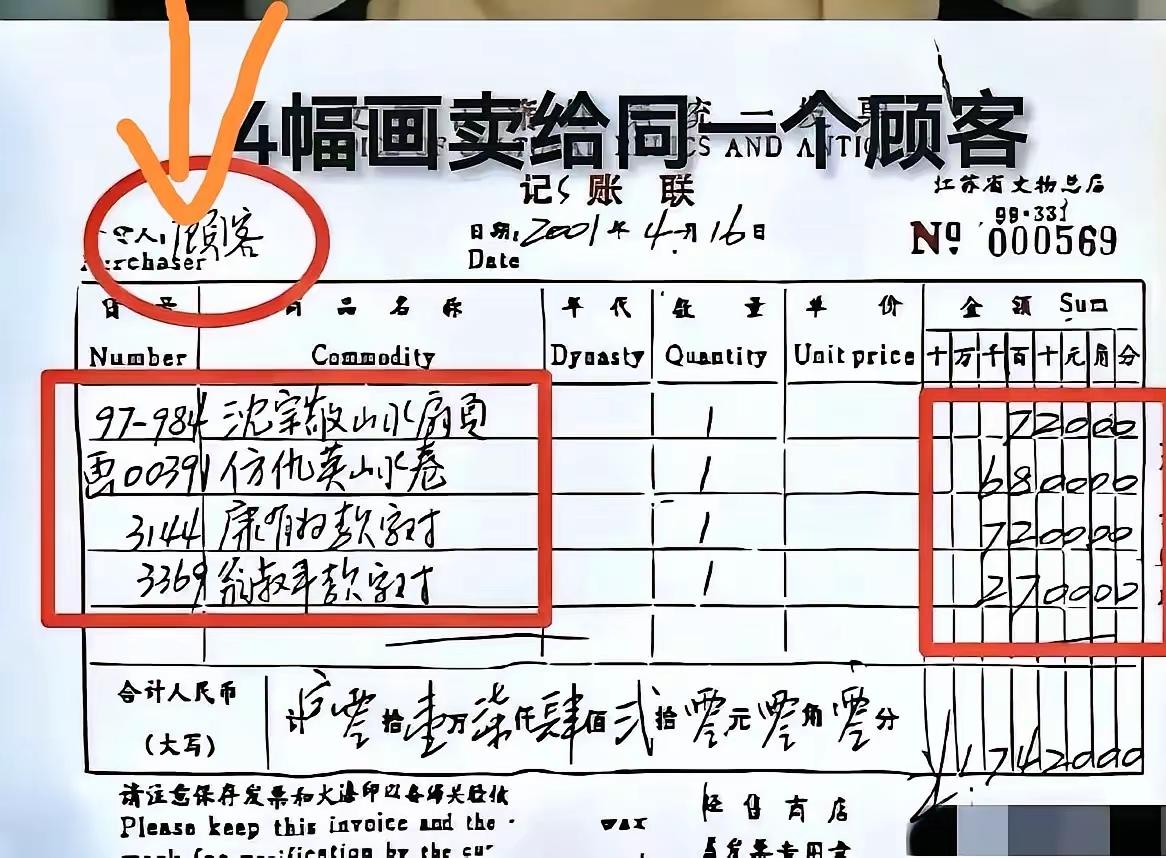 4幅画卖给同一个顾客
记账联
江苏省文物总店
99·331
人:顾客 日期:2001年4月16日 Nº 000569
Purchaser Date
商品名称 年代 数量 单价 金额 Sum
Number Commodity Dynasty Quantity Unit price 十万千百十元角分
97-984 沈宗敬山水扇页 1 72000
画00391 仿仇英山水卷 1 680000
3144 康有为款字对 1 720000
3369 翁叔平款字对 1 270000
合计人民币
(大写)
零拾壹万柒仟肆佰贰拾零元零角零分 ¥1742000
请注意保存发票和
Please keep this invoice and the
by the cur-